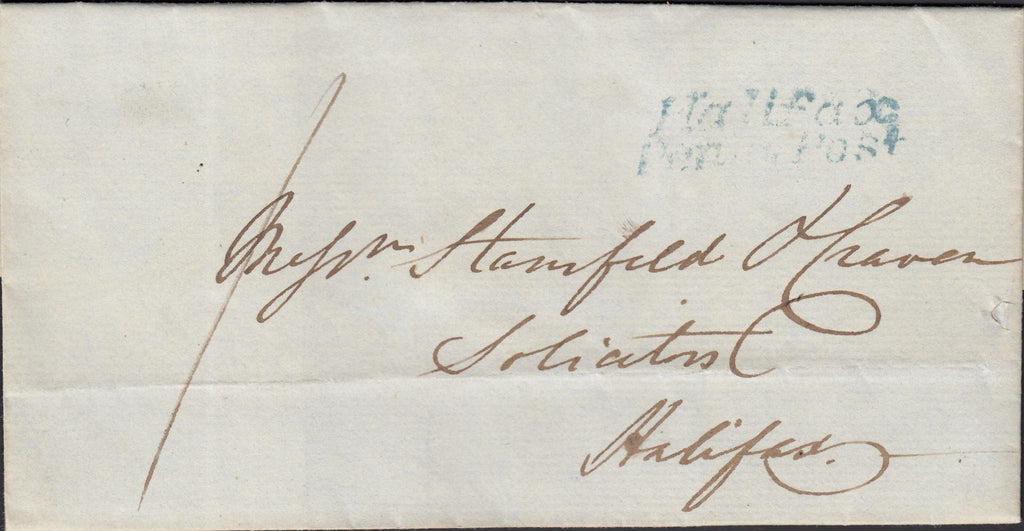 Halifax
Penny Post
Messrs. Stansfeld & Craven
Solicitors
Halifax.